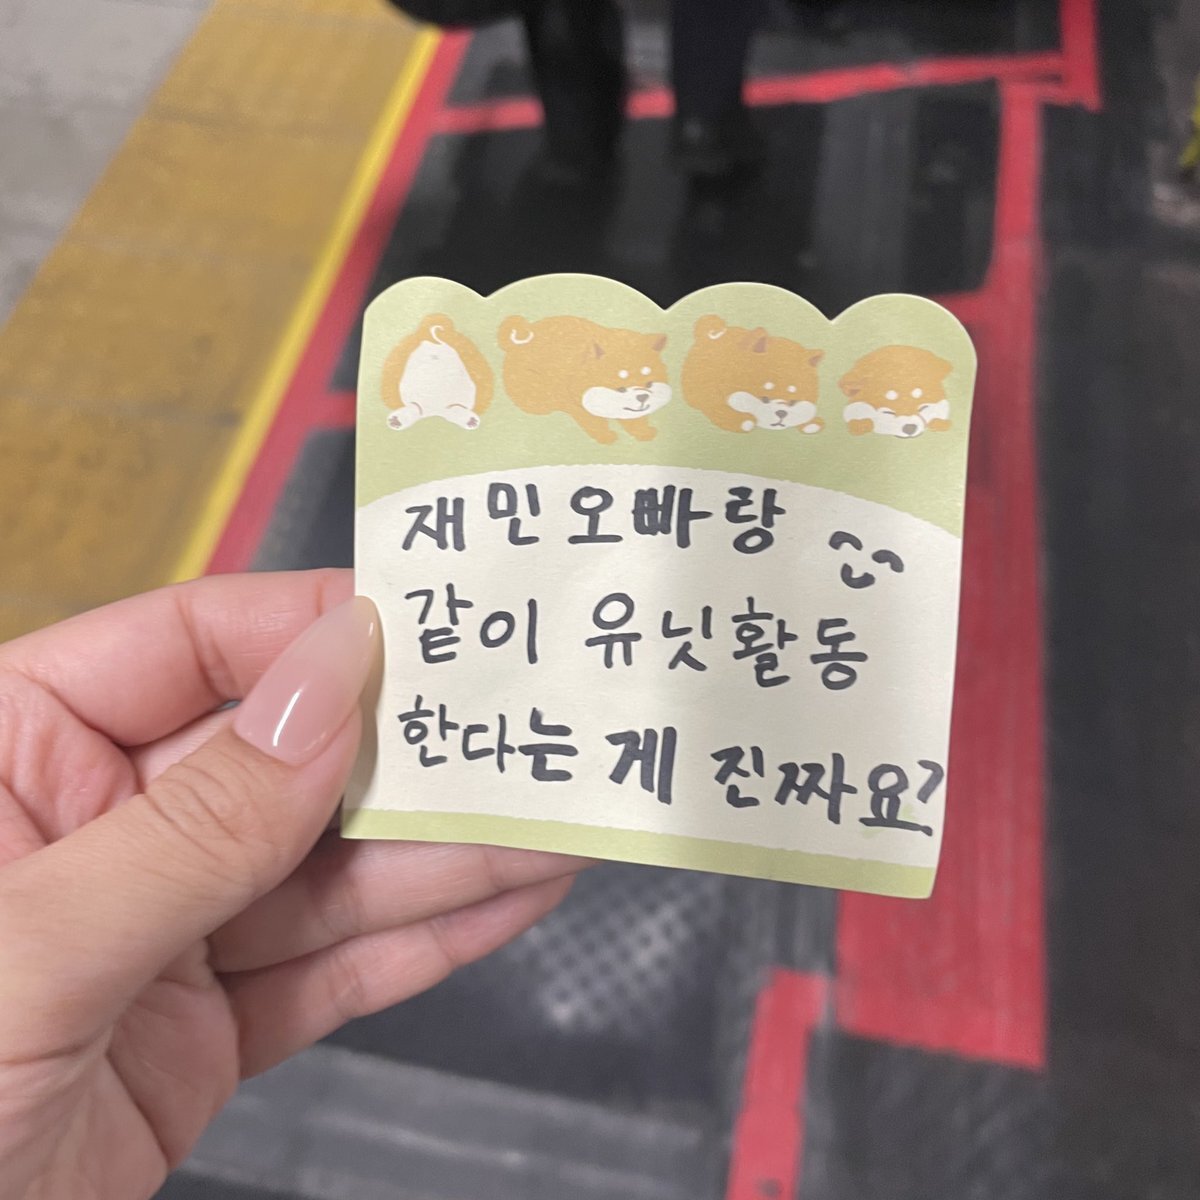 재민오빠랑
같이 유닛활동
한다는 게 진짜요?